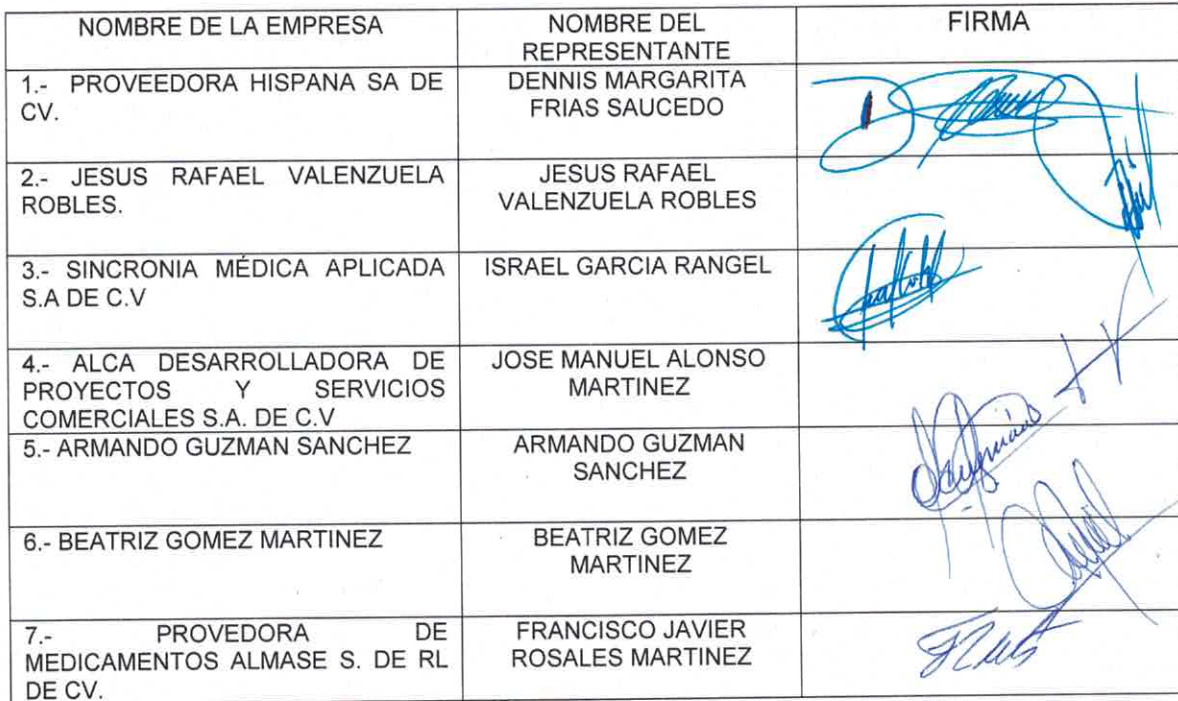 NOMBRE DE LA EMPRESA
NOMBRE DEL
REPRESENTANTE
FIRMA
1.- PROVEEDORA HISPANA SA DE
CV.
DENNIS MARGARITA
FRIAS SAUCEDO
2.- JESUS RAFAEL VALENZUELA
ROBLES.
JESUS RAFAEL
VALENZUELA ROBLES
3.- SINCRONIA MÉDICA APLICADA
S.A DE C.V
ISRAEL GARCIA RANGEL
4.- ALCA DESARROLLADORA DE
PROYECTOS Y SERVICIOS
COMERCIALES S.A. DE C.V
JOSE MANUEL ALONSO
MARTINEZ
5.- ARMANDO GUZMAN SANCHEZ
ARMANDO GUZMAN
SANCHEZ
6.- BEATRIZ GOMEZ MARTINEZ
BEATRIZ GOMEZ
MARTINEZ
7.- PROVEDORA DE
MEDICAMENTOS ALMASE S. DE RL
DE CV.
FRANCISCO JAVIER
ROSALES MARTINEZ